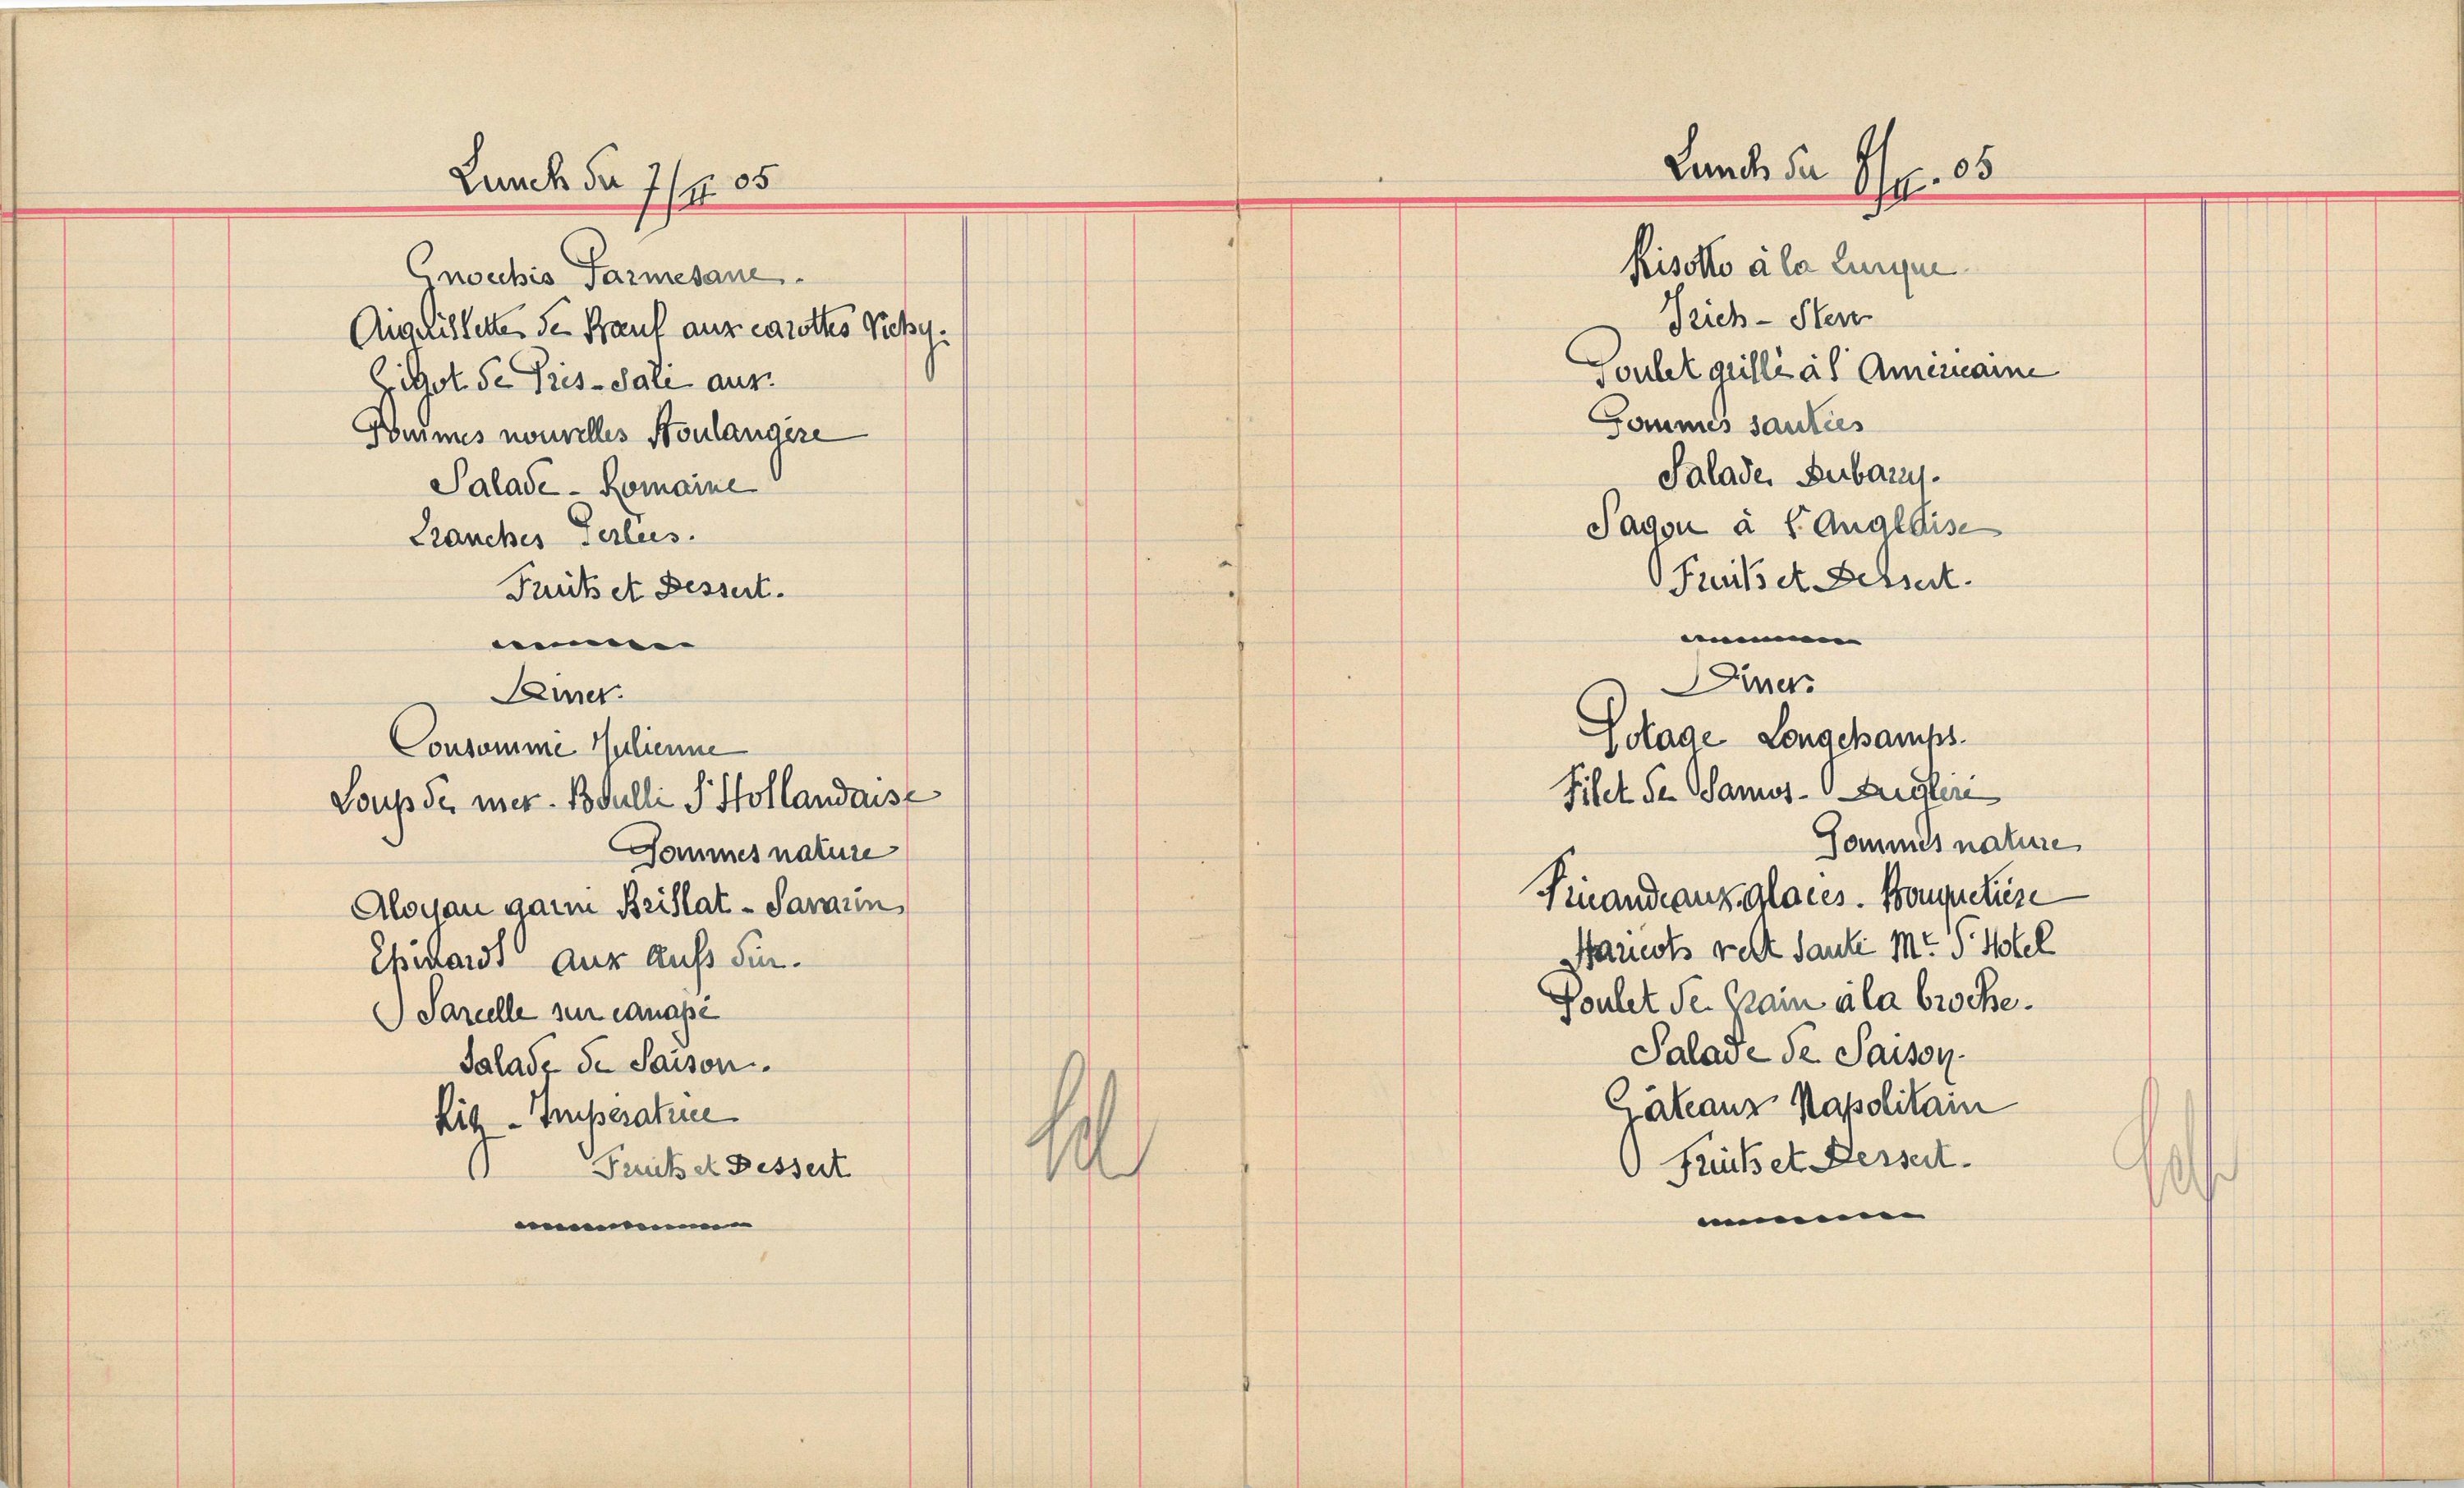 Lunch du 7/II 05
Gnocchis Parmesane.
Aiguillette de Bœuf aux carottes Vichy.
Gigot de Prés-Salé aux
Pommes nouvelles Boulangère
Salade - Romaine
Tranches Perlées.
Fruits et Dessert.
Diner.
Consommé Julienne
Loup de mer. Boulli S. Hollandaise
Pommes nature
Aloyau garni Brillat - Savarin
Epinards aux œufs dur.
Sarcelle sur canapé
Salade de Saison.
Riz - Impératrice
Fruits et Dessert
Lunch du 8/II. 05
Risotto à la Turque
Irich - Stew
Poulet grillé à l'Américaine
Pommes sautées
Salade Dubarry.
Sagou à l'Anglaise
Fruits et Dessert.
Diner.
Potage Longchamps.
Filet de Samos - Dugléré
Pommes nature
Fricandeaux glacés. Bouquetière
Haricots vert sauté Mt. d'Hotel
Poulet de Grain à la broche.
Salade de Saison.
Gâteaux Napolitain
Fruits et Dessert.